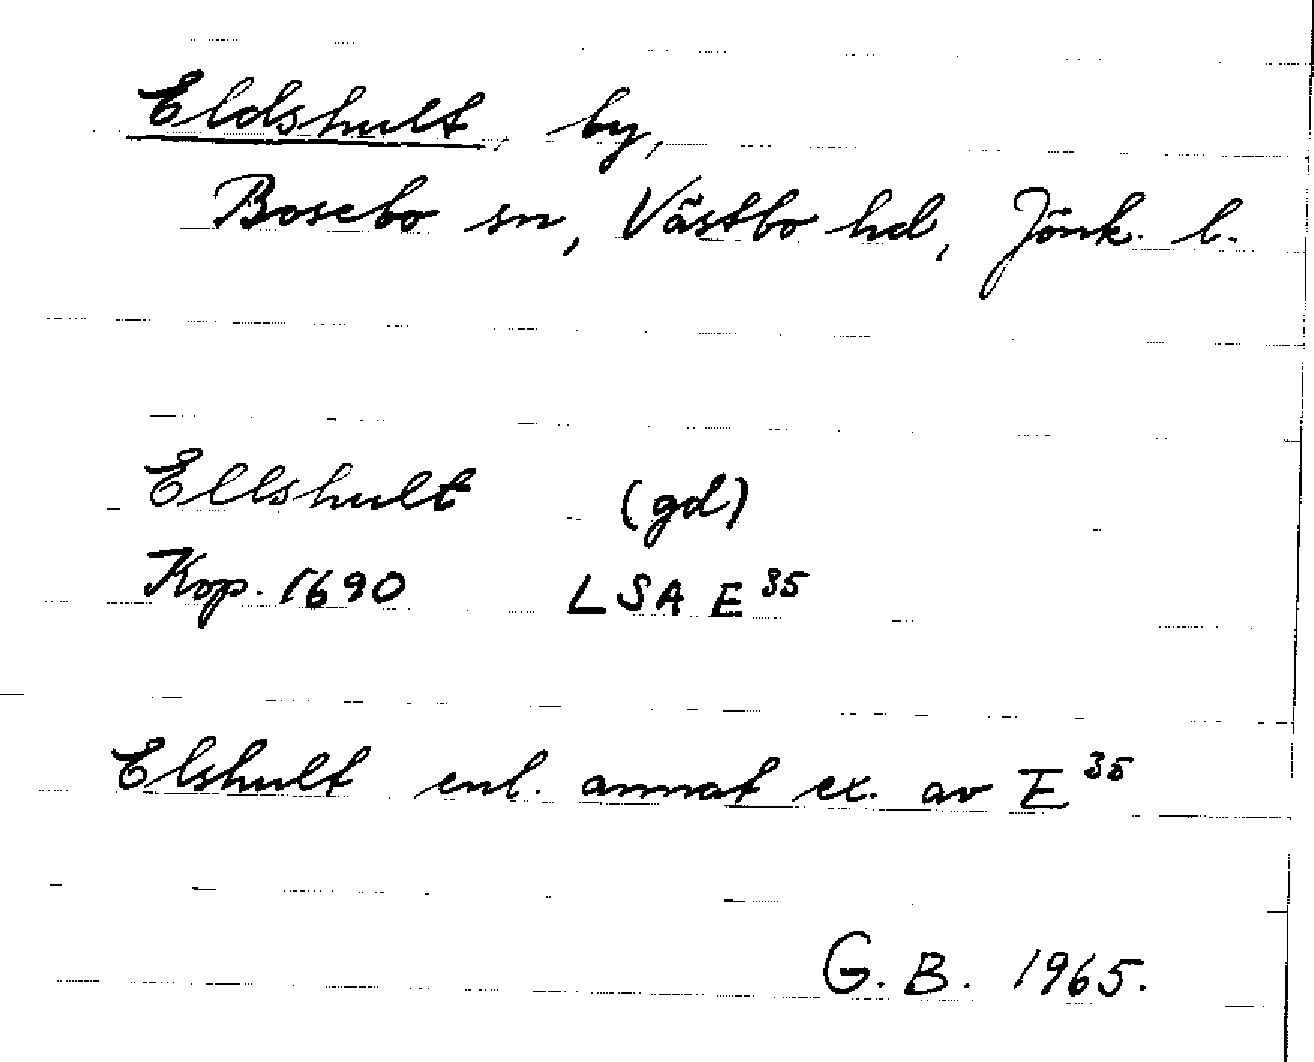 Eldshult, by,
Bosebo sn, Västbo hd, Jönk. l.
Ellshult (gd)
Kop. 1690 LSA E 35
Elshult enl. annat ex. av E 35
G. B. 1965.